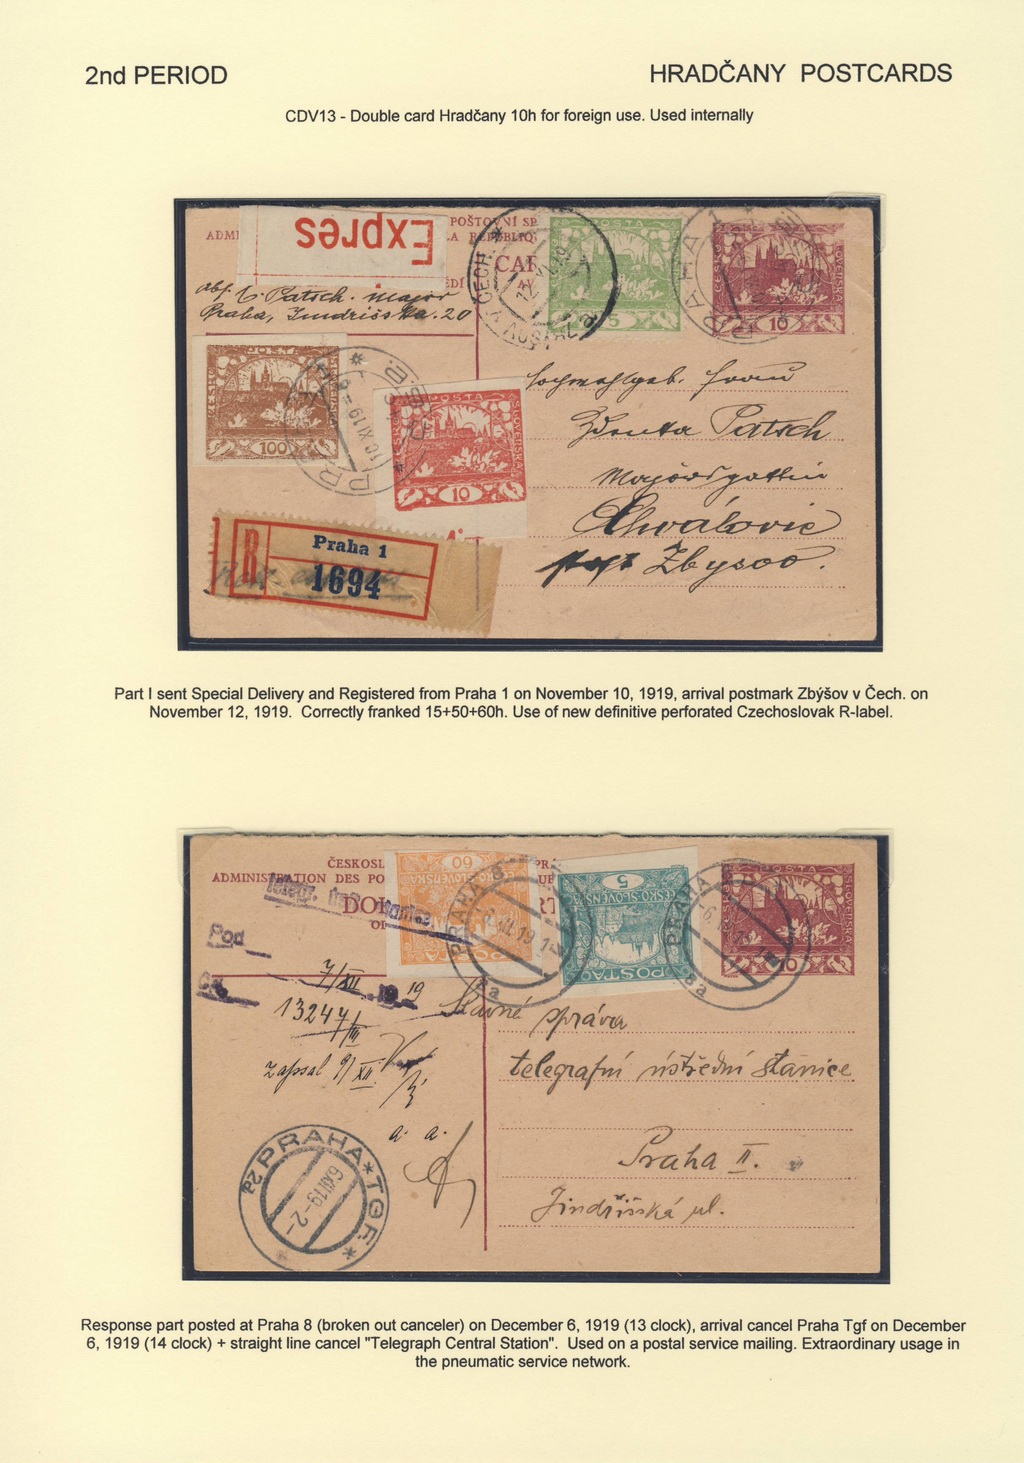 2nd PERIOD
HRADČANY POSTCARDS
CDV13 - Double card Hradčany 10h for foreign use. Used internally
Expres
POŠTOVNÍ
ADMI
CAR
Praha, 20
5
10
PRAHA 1
12.VI.19
ZBÝŠOV V ČECH.
100
POSTA
ČESKO
SLOVENSKÁ
10
10 XI 19
R
Praha 1
1694
Zdenka Patsch
Chvalovic
post Zbysov.
Part I sent Special Delivery and Registered from Praha 1 on November 10, 1919, arrival postmark Zbýšov v Čech. on
November 12, 1919. Correctly franked 15+50+60h. Use of new definitive perforated Czechoslovak R-label.
ČESKOSL
ADMINISTRATION DES PO
60
5
POSTA
ČESKO-SLOVENSKÁ
10
PRAHA 8
8a
Pod
7/XII 1919
13244
zapsal 9/XII
Slavné správa
telegrafní ústřední stanice
Praha II.
Jindřišská ul.
PRAHA * TGF. *
6.XII.19-2-
Response part posted at Praha 8 (broken out canceler) on December 6, 1919 (13 clock), arrival cancel Praha Tgf on December
6, 1919 (14 clock) + straight line cancel "Telegraph Central Station". Used on a postal service mailing. Extraordinary usage in
the pneumatic service network.